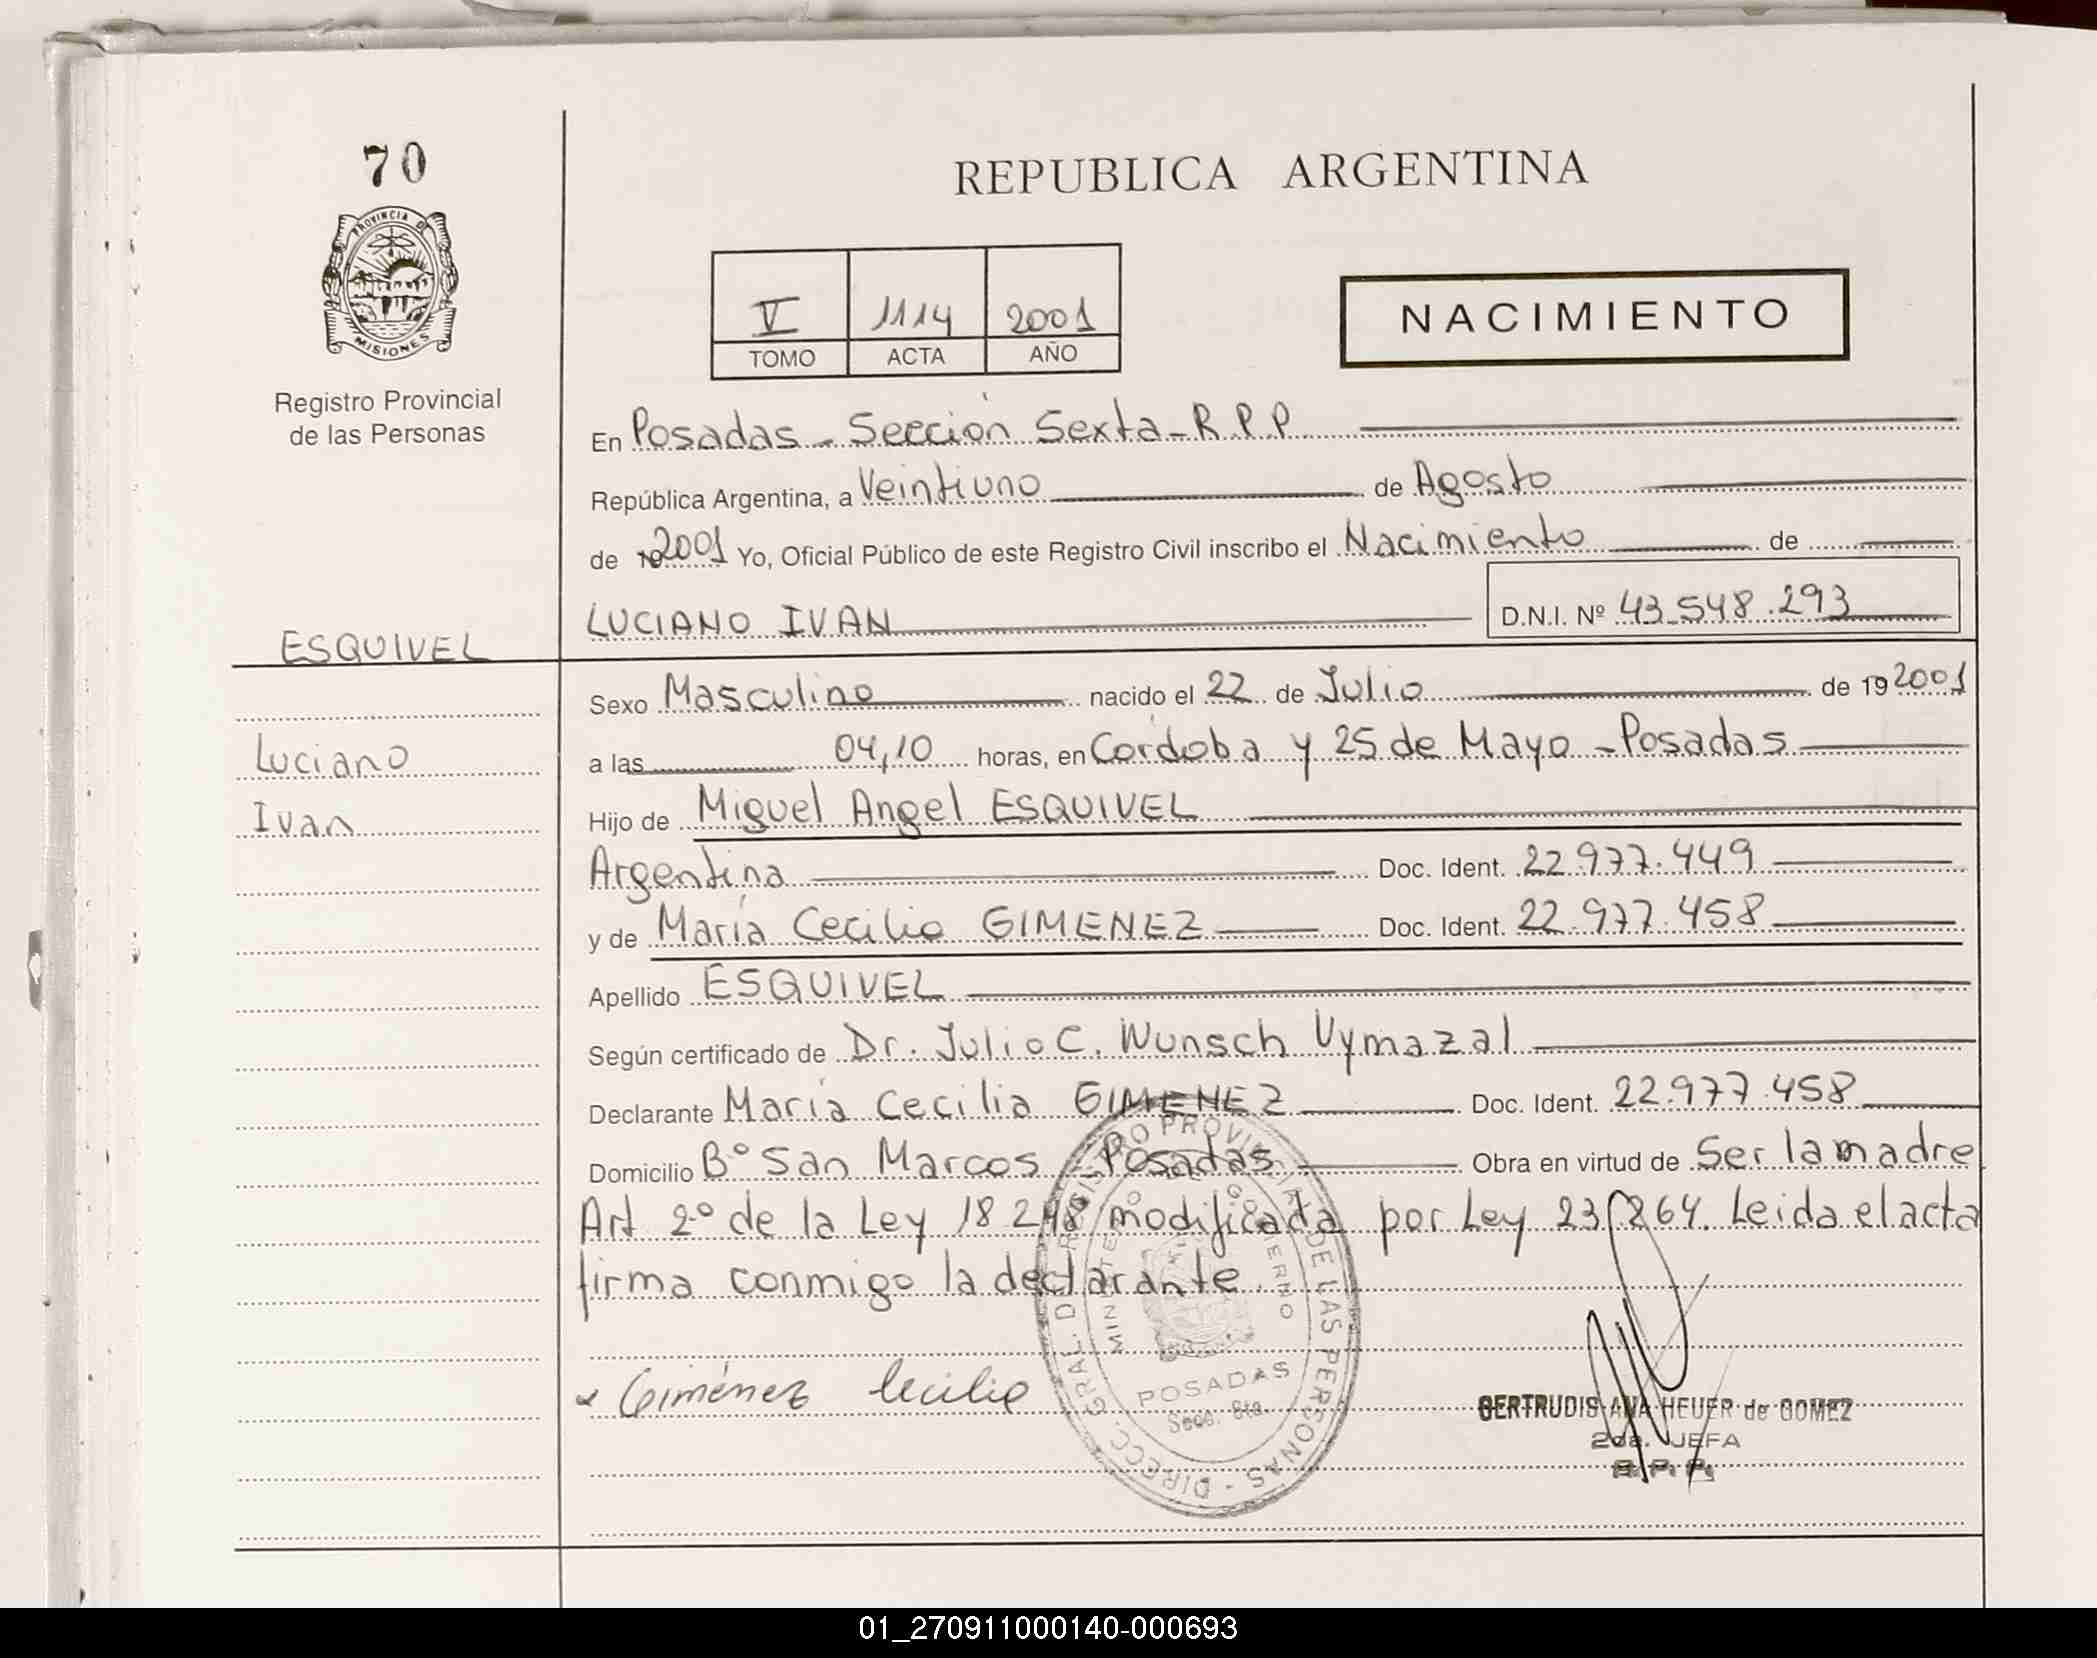 70
PROVINCIA DE
MISIONES
Registro Provincial
de las Personas
REPUBLICA ARGENTINA
V 1114 2001
TOMO ACTA AÑO
NACIMIENTO
En Posadas - Sección Sexta - R.P.P
República Argentina, a Veintiuno de Agosto
de 2001 Yo, Oficial Público de este Registro Civil inscribo el Nacimiento de
LUCIANO IVAN D.N.I. Nº 43.548.293
ESQUIVEL
Sexo Masculino nacido el 22 de Julio de 19 2001
Luciano
a las 04,10 horas, en Córdoba y 25 de Mayo - Posadas
Ivan
Hijo de Miguel Angel ESQUIVEL
Argentina Doc. Ident. 22.977.449
y de María Cecilia GIMENEZ Doc. Ident. 22.977.458
Apellido ESQUIVEL
Según certificado de Dr. Julio C. Wunsch Vymazal
Declarante María Cecilia GIMENEZ Doc. Ident. 22.977.458
Domicilio Bº San Marcos - Posadas Obra en virtud de Ser la madre
Art 2º de la Ley 18248 modificada por Ley 23.264. Leida el acta
firma conmigo la declarante.
Giménez Cecilia
DIRECC. GRAL. D. REGISTRO PROVINCIAL DE LAS PERSONAS -
MINISTERIO GOBIERNO
POSADAS
Secc. 6ta.
GERTRUDIS ANA HEUER de GOMEZ
2da. JEFA
R. P. P.
01_270911000140-000693